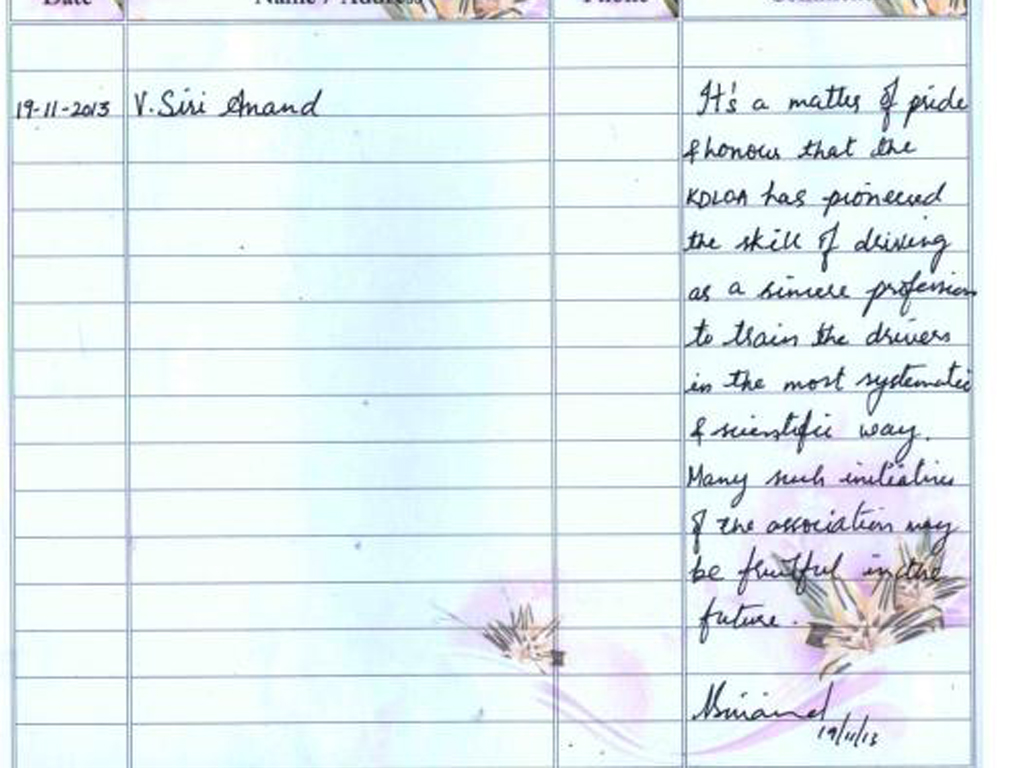 Date Name / Address Phone
19-11-2013 V. Siri Anand It's a matter of pride
& honour that the
KDLOA has pioneered
the skill of driving
as a sincere profession
to train the drivers
in the most systematic
& scientific way.
Many such initiatives
of the association may
be fruitful in the
future.
19/11/13